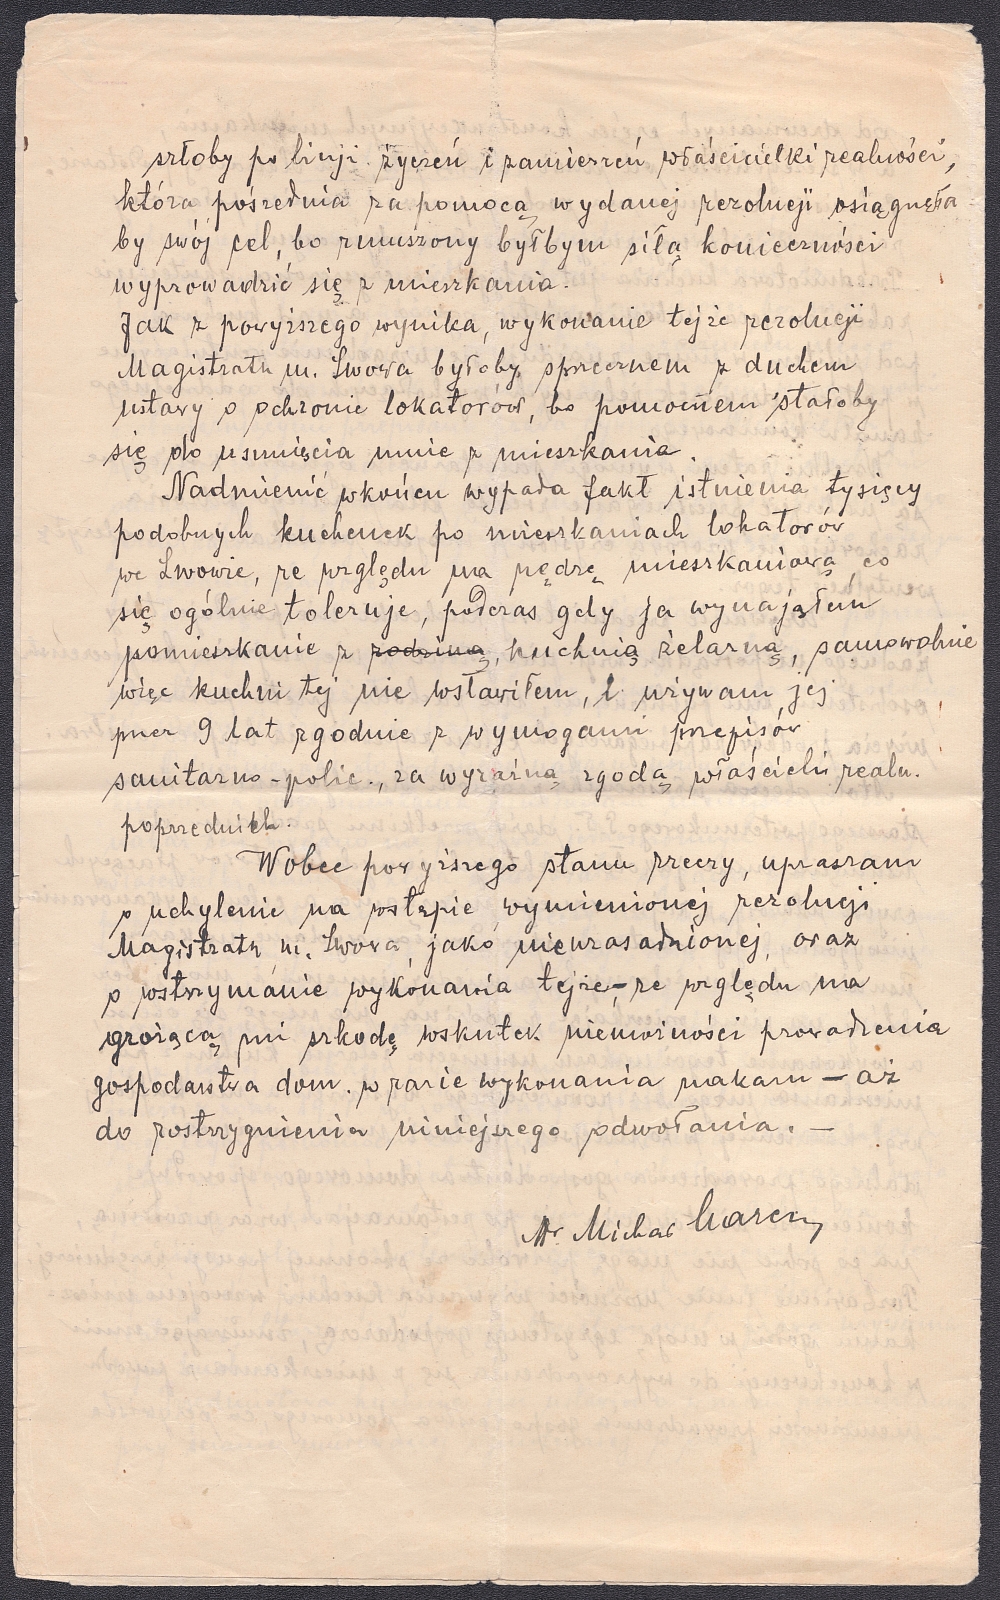 szłoby po linji życzeń i zamierzeń właścicielki realności,
która pośrednia za pomocą wydanej rezolucji osiągnęła
by swój cel, bo zmuszony byłbym siłą konieczności
wyprowadzić się z mieszkania.
Jak z powyższego wynika, wykonanie tejże rezolucji
Magistratu m. Lwowa byłoby sprzecznem z duchem
ustawy o ochronie lokatorów, bo pomocnem stałoby
się do usunięcia mnie z mieszkania.
Nadmienić wkońcu wypada fakt istnienia tysięcy
podobnych kuchenek po mieszkaniach lokatorów
we Lwowie, ze względu na nędzę mieszkaniową, co
się ogólnie toleruje, podczas gdy ja wynająłem
pomieszkanie z rodziną, kuchnią żelazną, samowolnie
więc kuchni tej nie wstawiłem, i używam jej
przez 9 lat zgodnie z wymogami przepisów
sanitarno-polic., za wyraźną zgodą właścicieli realn.
poprzednich.
Wobec powyższego stanu rzeczy, upraszam
o uchylenie na wstępie wymienionej rezolucji
Magistratu m. Lwowa, jako nieuzasadnionej, oraz
o wstrzymanie wykonania tejże – ze względu na
grożącą mi szkodę wskutek niemożności prowadzenia
gospodarstwa dom. w razie wykonania nakazu – aż
do rozstrzygnienia niniejszego odwołania. –
Dr Michał